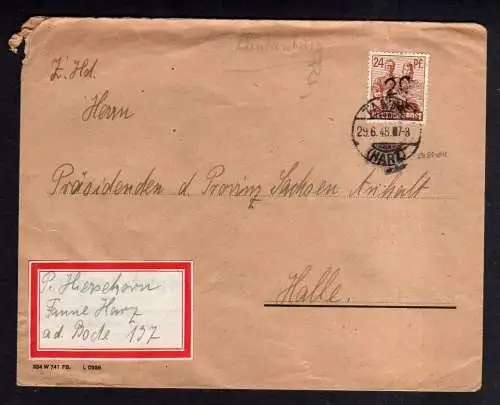 Z. Hd.
Herrn
24 Pf.
20
DEUTSCHE POST
29.6.48.
(HARZ)
Präsidenden d. Provinz Sachsen Anhalt
Halle.
P. Hierschorn
Tanne Harz
a.d. Bode 137
304 W 741 FB. L 0598